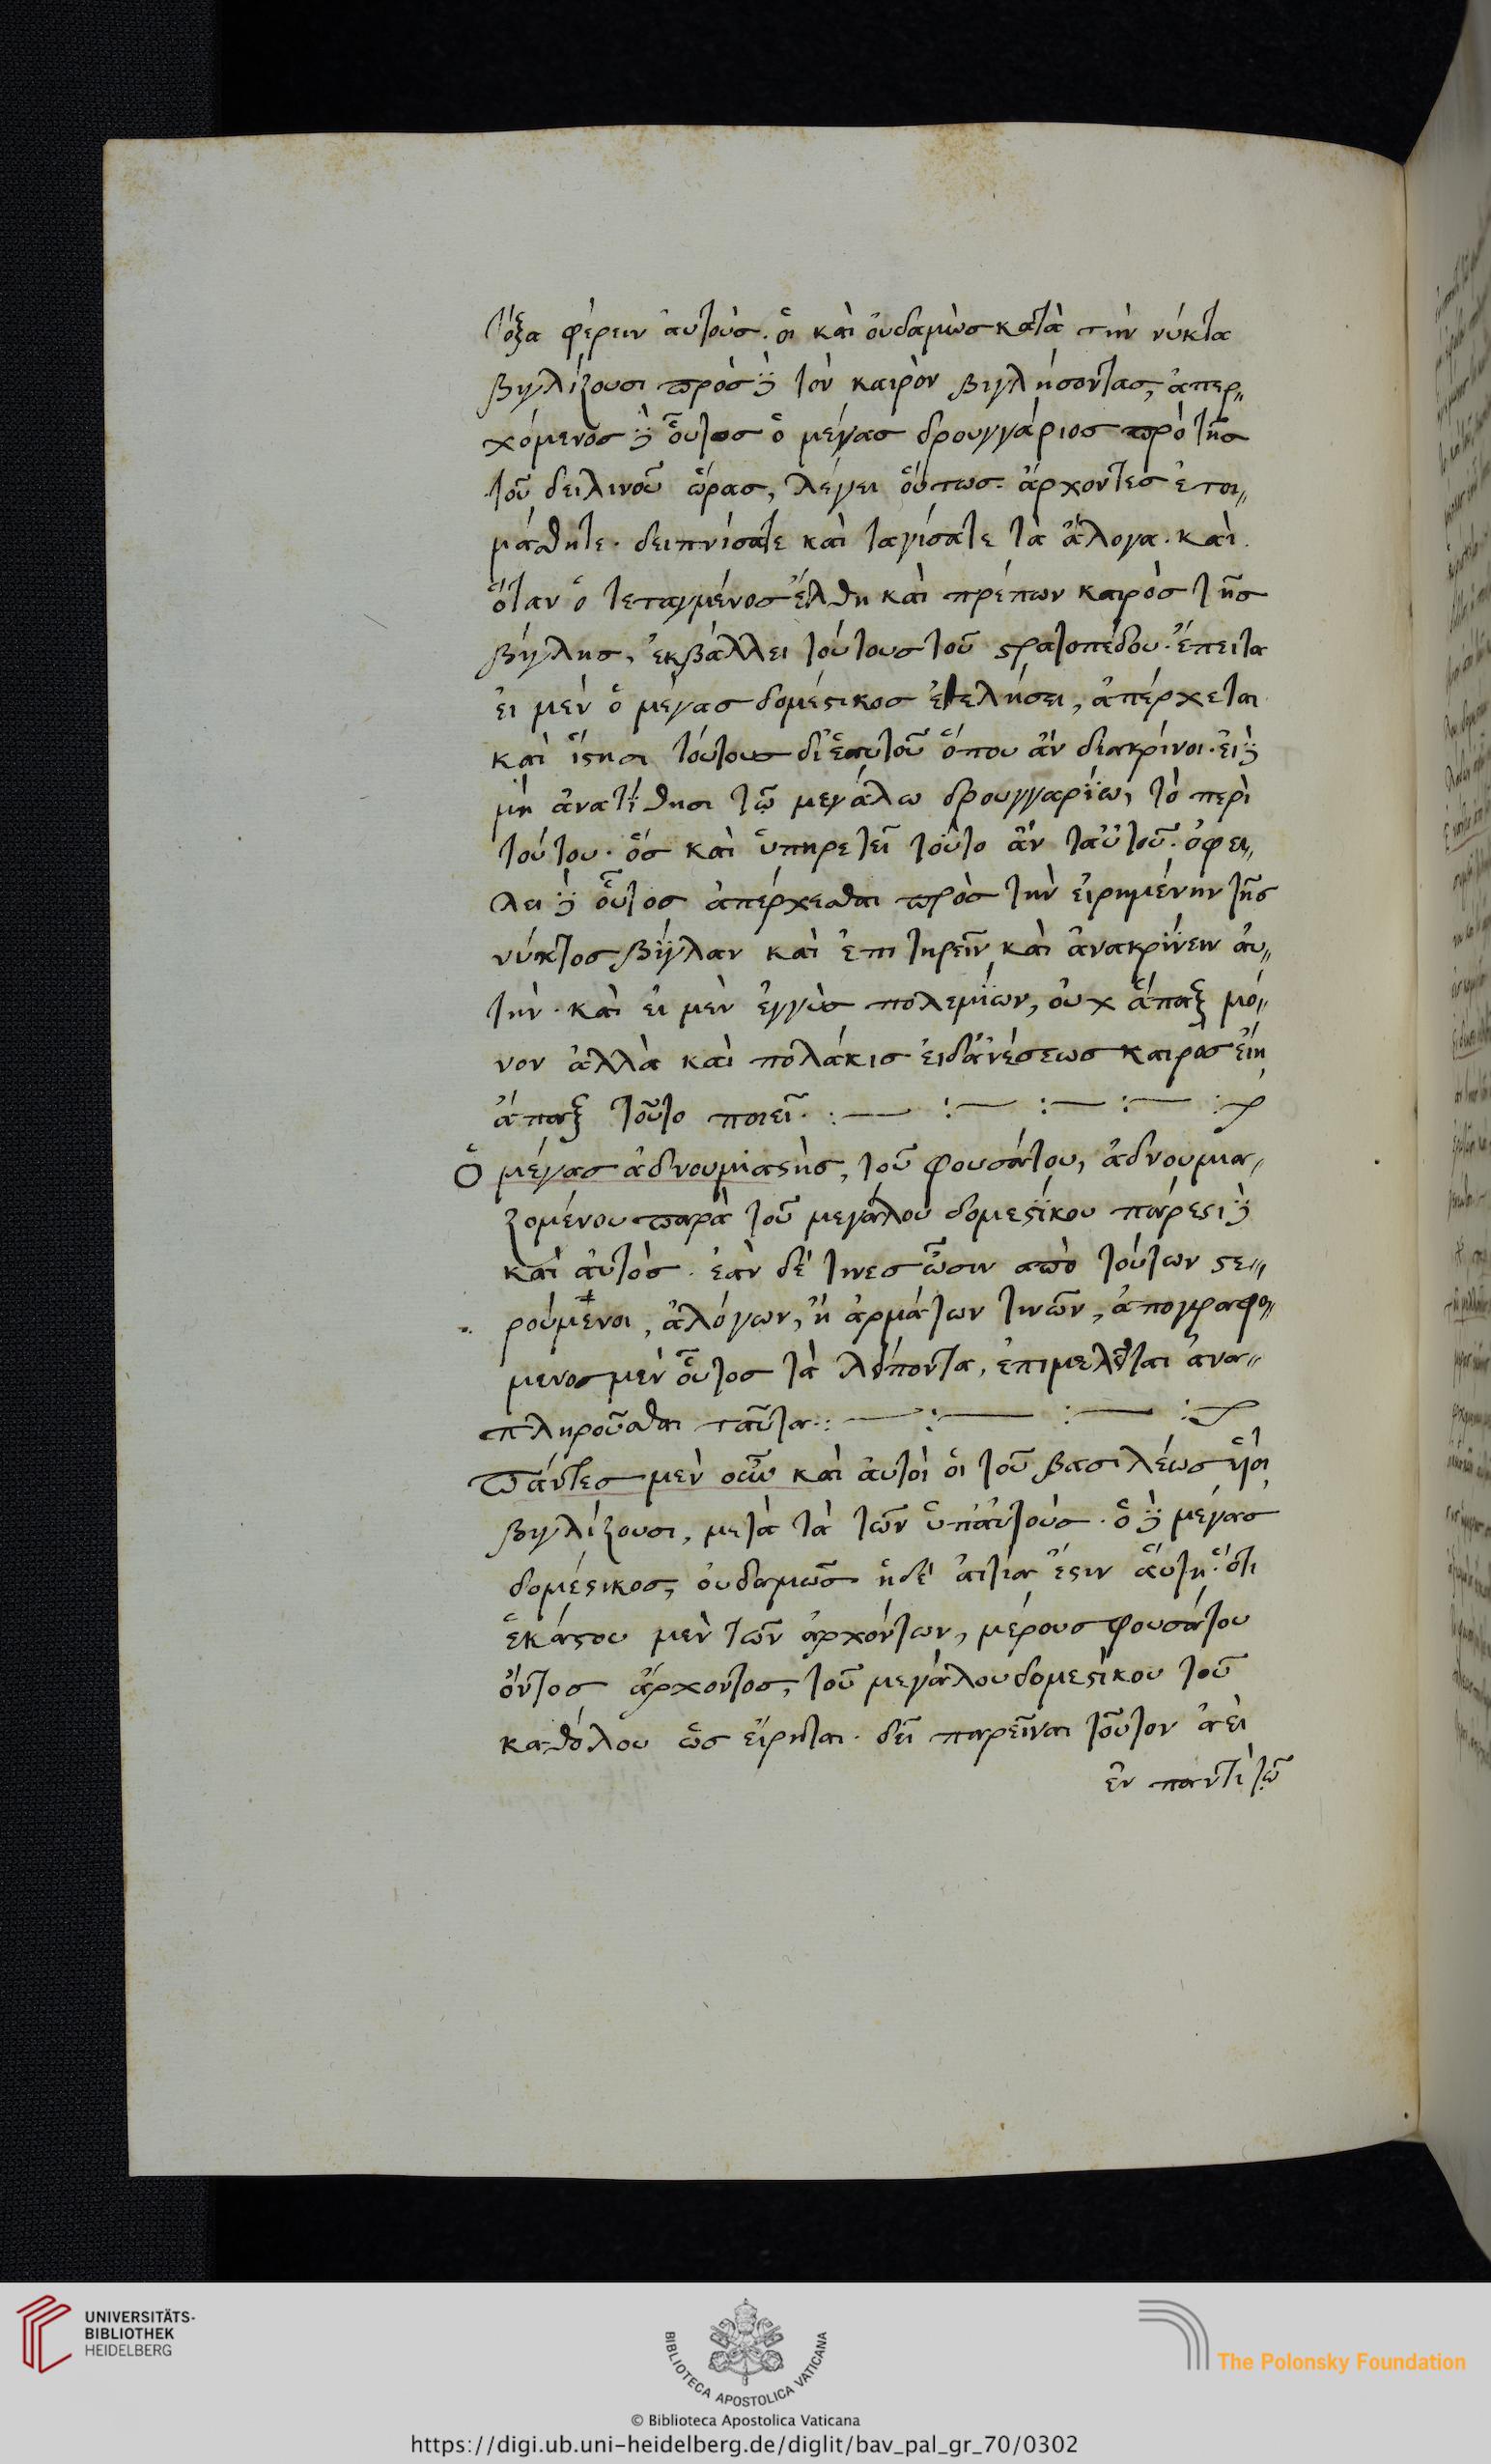 τόξα φέρειν ἀυτούσ. ὅι καὶ ὀυδαμῶσ κατὰ τὴν νύκτα
βιγλίζουσι πρὸσ δὲ τὸν καιρὸν βιγλήσοντασ, ἀπερ„
χόμενοσ δὲ ὅυτοσ ὁ μέγασ δρουγγάριοσ πρὸ τῆσ
τοῦ δειλινοῦ ὥρασ, λέγει ὅυτωσ. ἄρχοντεσ ἑτοι„
μάσθητε. δειπνίσατε καὶ ταγίσατε τὰ ἄλογα. καὶ
ὅταν ὁ τεταγμένοσ ἔλθη καὶ πρέπων καιρὸσ τῆσ
βίγλησ, ἐκβάλλει τούτουσ τοῦ στρατοπέδου. ἔπειτα
ἐι μὲν ὁ μέγασ δομέστικοσ ἐθελήσει, ἀπέρχεται
καὶ ἵστησι τούτουσ δι᾽ ἑαυτοῦ ὅπου ἂν διακρίνοι. ἐι δὲ
μὴ ἀνατίθησι τῷ μεγάλω δρουγγαρίω, τὸ περὶ
τούτου. ὃσ καὶ ὑπηρετεῖ τοῦτο ἂν τ᾽ αὐτοῦ. ὀφεί„
λει δὲ οὗτοσ ἀπέρχεσθαι πρὸσ τὴν εἰρημένην τῆσ
νύκτοσ βίγλαν καὶ ἐπιτηρεῖν καὶ ἀνακρίνειν ἀυ„
τήν. καὶ ἐι μὲν ἐγγὺσ πολεμίων, ὀυχ ἅπαξ μό„
νον ἀλλὰ καὶ πολάκισ ἐιδ᾽ ἀνέσεωσ καιρὸσ ἐίη
ἅπαξ τοῦτο ποιεῖ. :— :— :— :— :~
Ὁ μέγασ ἀδνουμιαστὴσ, τοῦ φουσάτου, ἀδνουμια„
ζομένου παρὰ τοῦ μεγάλου δομεστίκου πάρεστι δὲ
καὶ ἀυτόσ. ἐὰν δέ τινεσ ὦσιν ἀπὸ τούτων στε„
ρούμενοι, ἀλόγων, ἢ ἁρμάτων τινῶν, ἀπογραφό„
μενοσ μὲν οὗτοσ τὰ λείποντα, ἐπιμελεῖται ἀνα„
πληροῦσθαι ταῦτα. :— :— :— :~
Πάντεσ μὲν οὖν καὶ ἀυτοὶ ὁι τοῦ βασιλέωσ θεῖοι
βιγλίζουσι, μετὰ τὰ τῶν ὑπ᾽ ἀυτούσ. ὁ δὲ μέγασ
δομέστικοσ, ὀυδαμῶσ ἡ δὲ ἀιτία ἔστιν ἅυτη. ὅτι
ἑκάστου μὲν τῶν ἀρχόντων, μέρουσ φουσάτου
ὄντοσ ἄρχοντοσ, τοῦ μεγάλου δομεστίκου τοῦ
καθόλου ὡσ εἴρηται. δεῖ παρεῖναι τοῦτον ἀεὶ
ἐν παντὶ τῷ
UNIVERSITÄTS-
BIBLIOTHEK
HEIDELBERG
BIBLIOTECA APOSTOLICA VATICANA
The Polonsky Foundation
© Biblioteca Apostolica Vaticana
https://digi.ub.uni-heidelberg.de/diglit/bav_pal_gr_70/0302